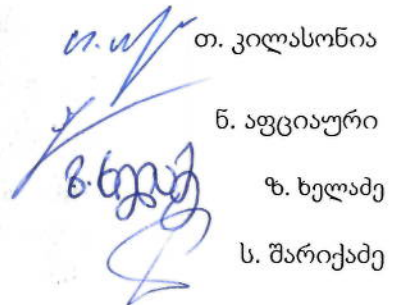 თ. კილასონია
ნ. აფციაური
ზ. ხელაძე
ს. შარიქაძე